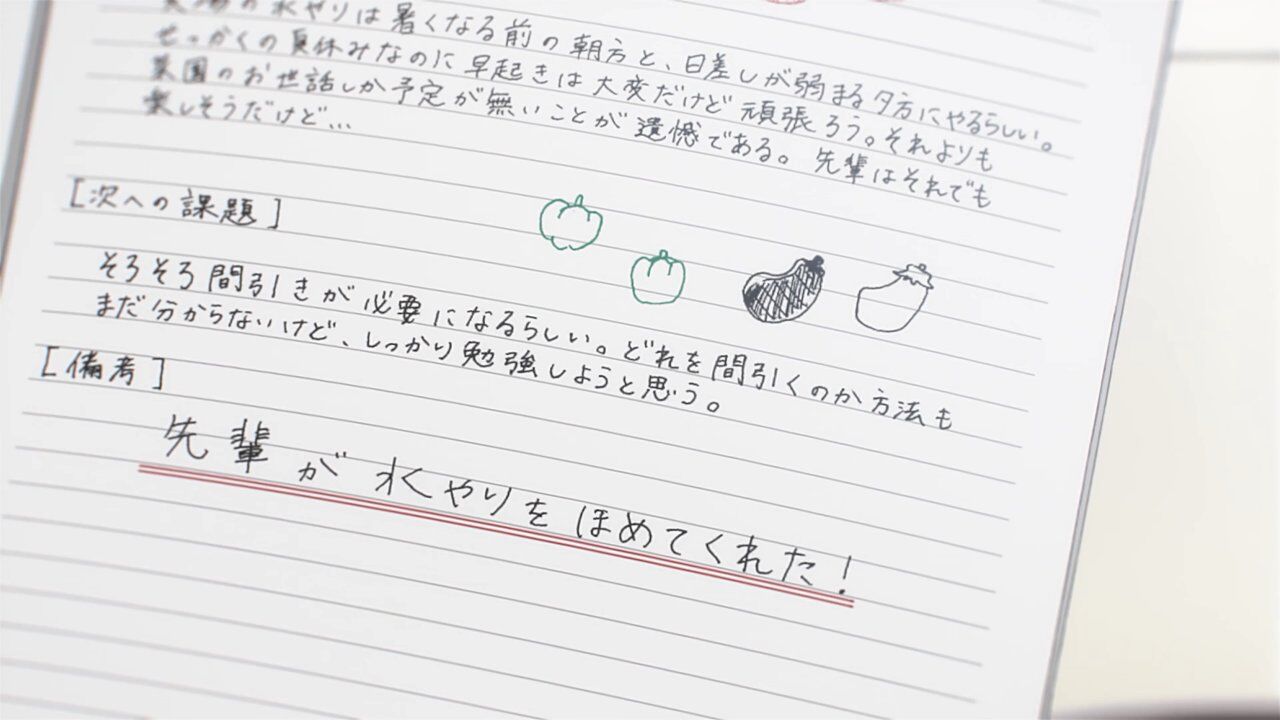 の水やりは暑くなる前の朝方と、日差しが弱まる夕方にやるらしい。
せっかくの夏休みなのに早起きは大変だけど頑張ろう。それよりも
菜園のお世話しか予定が無いことが遺憾である。先輩はそれでも
楽しそうだけど…
[次への課題]
そろそろ間引きが必要になるらしい。どれを間引くのか方法も
まだ分からないけど、しっかり勉強しようと思う。
[備考]
先輩が水やりをほめてくれた!